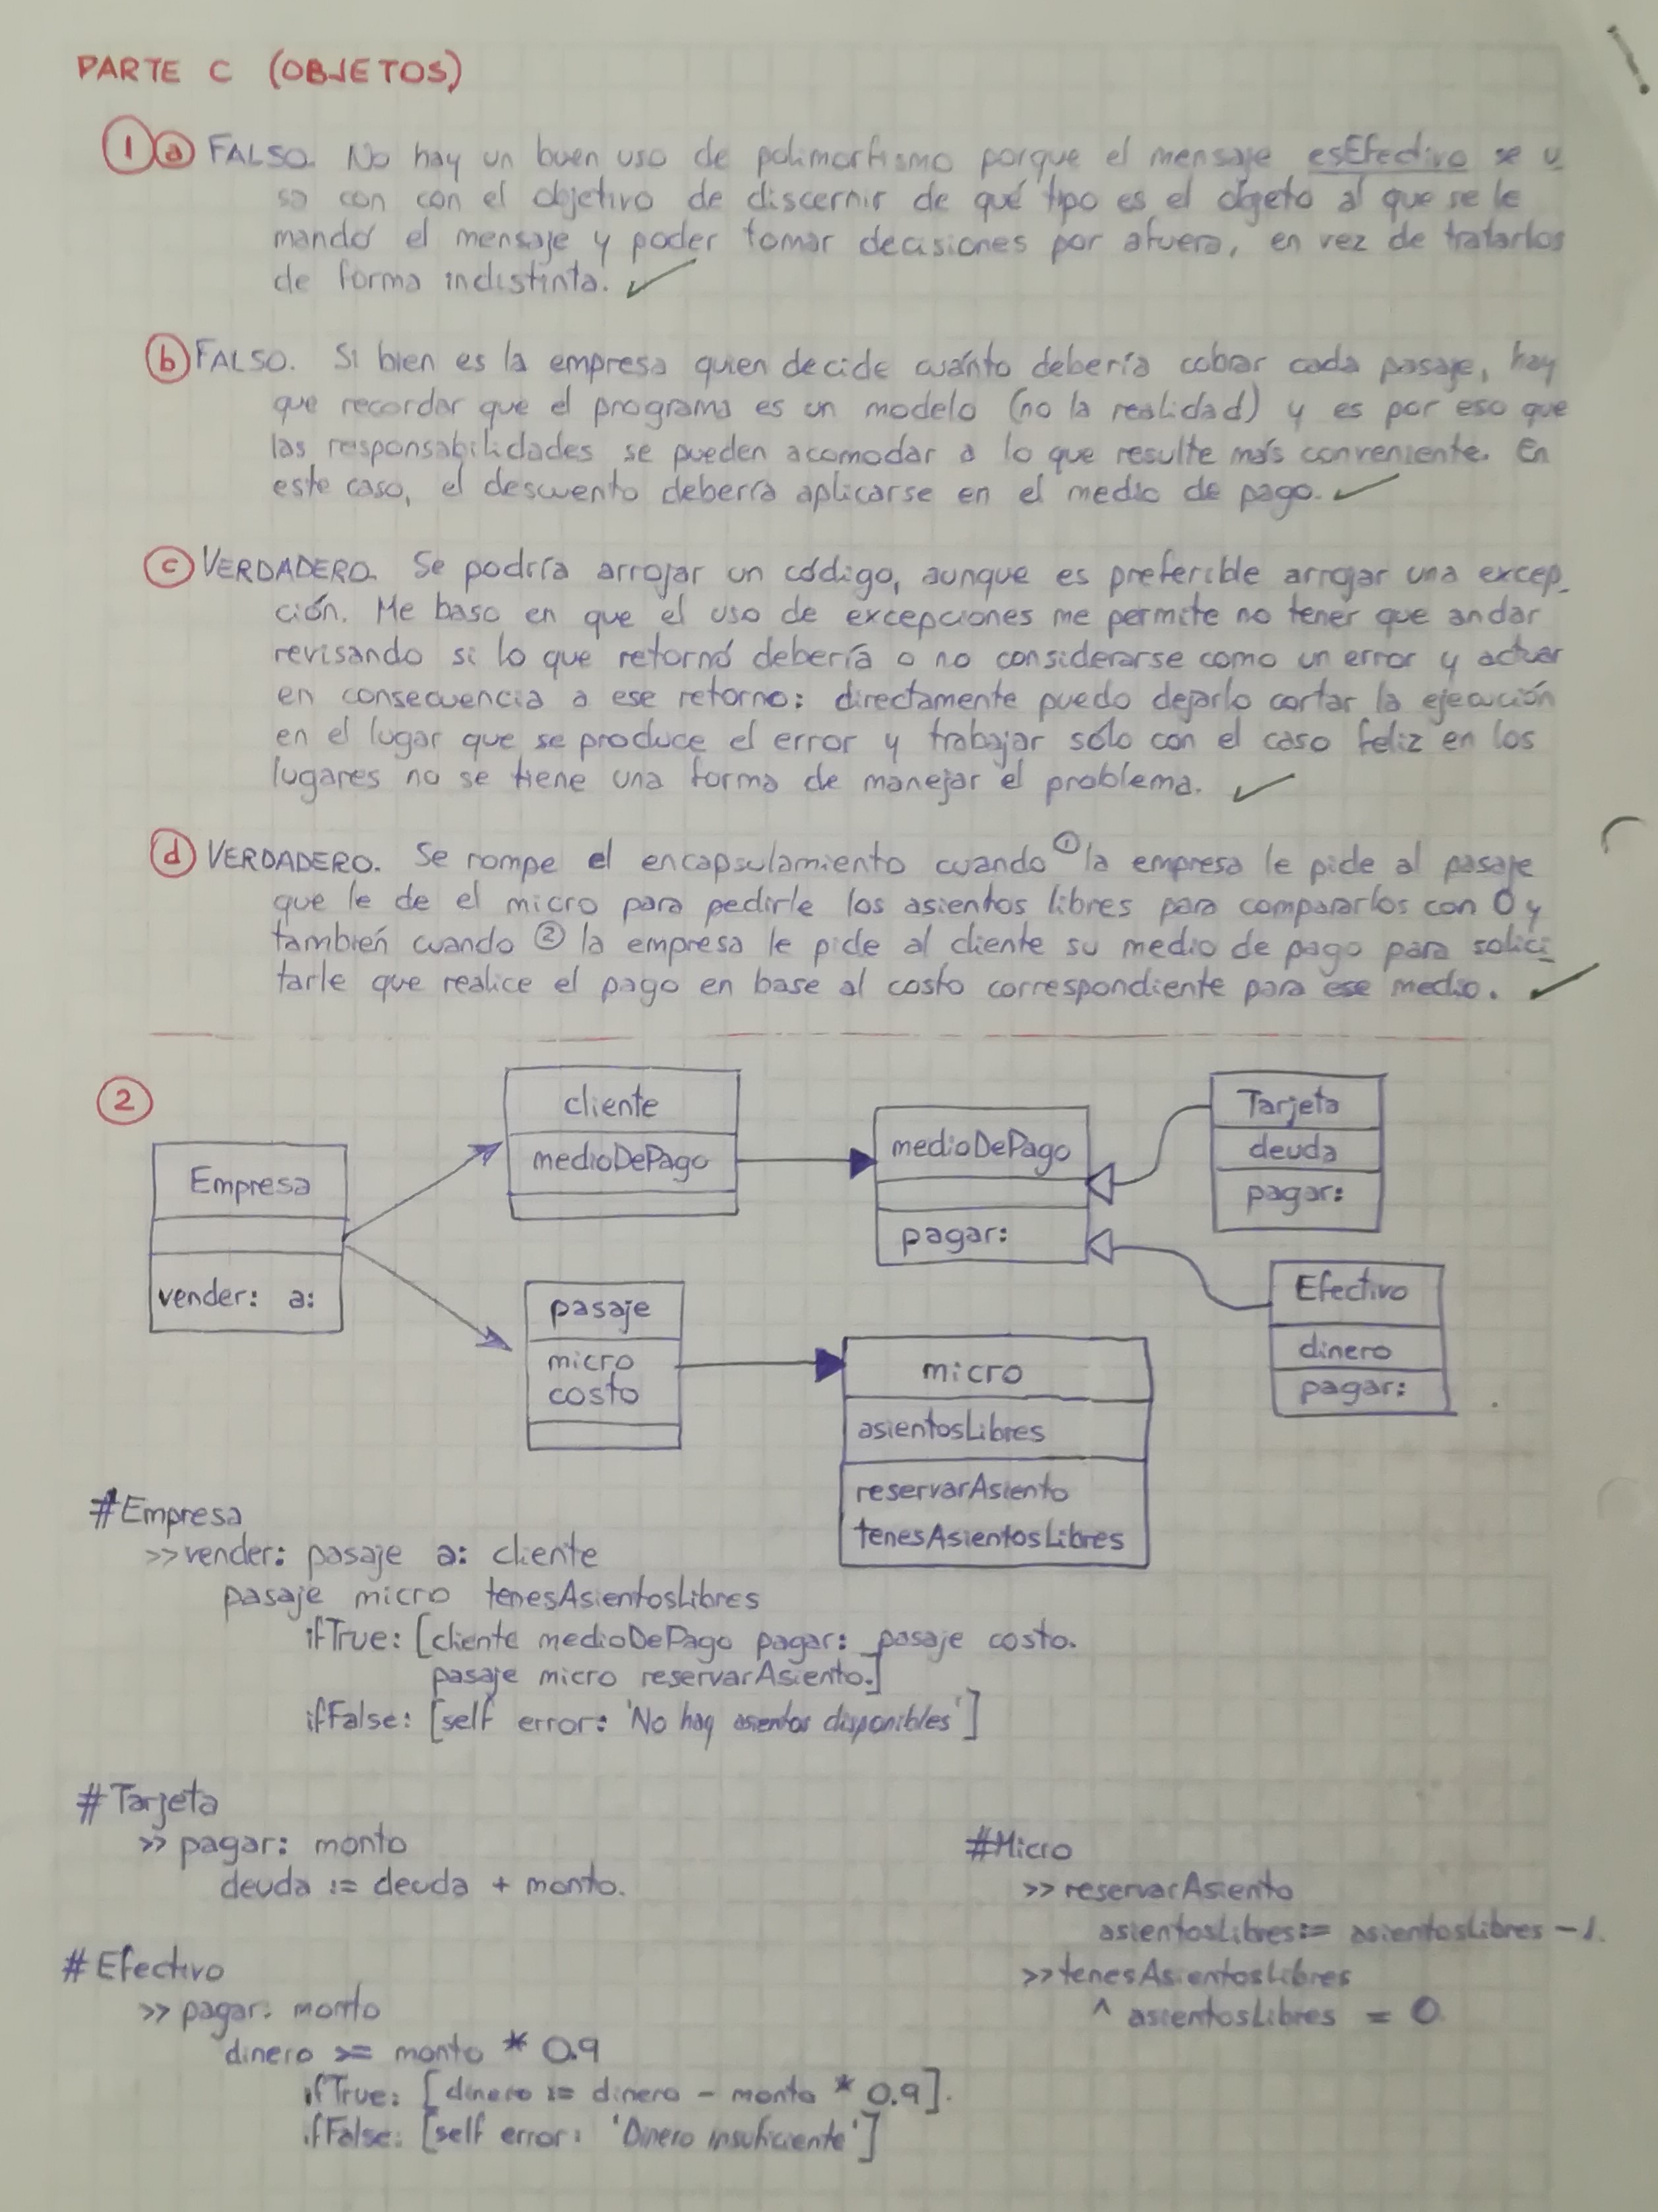 PARTE C (OBJETOS)
1 a FALSO. No hay un buen uso de polimorfismo porque el mensaje esEfectivo se u
sa con con el objetivo de discernir de qué tipo es el objeto al que se le
mandó el mensaje y poder tomar decisiones por afuera, en vez de tratarlos
de forma indistinta. ✓
b FALSO. Si bien es la empresa quien decide cuánto debería cobrar cada pasaje, hay
que recordar que el programa es un modelo (no la realidad) y es por eso que
las responsabilidades se pueden acomodar a lo que resulte más conveniente. En
este caso, el descuento debería aplicarse en el medio de pago. ✓
c VERDADERO. Se podría arrojar un código, aunque es preferible arrojar una excep_
ción. Me baso en que el uso de excepciones me permite no tener que andar
revisando si lo que retornó debería o no considerarse como un error y actuar
en consecuencia a ese retorno: directamente puedo dejarlo cortar la ejecución
en el lugar que se produce el error y trabajar sólo con el caso feliz en los
lugares no se tiene una forma de manejar el problema. ✓
d VERDADERO. Se rompe el encapsulamiento cuando ① la empresa le pide al pasaje
que le de el micro para pedirle los asientos libres para compararlos con 0 y
también cuando ② la empresa le pide al cliente su medio de pago para solici_
tarle que realice el pago en base al costo correspondiente para ese medio. ✓
2
Empresa
vender: a:
cliente
medioDePago
medioDePago
pagar:
Tarjeta
deuda
pagar:
Efectivo
dinero
pagar:
pasaje
micro
costo
micro
asientosLibres
reservarAsiento
tenesAsientosLibres
#Empresa
>>vender: pasaje a: cliente
pasaje micro tenesAsientosLibres
ifTrue: [cliente medioDePago pagar: pasaje costo.
pasaje micro reservarAsiento.]
ifFalse: [self error: 'No hay asientos disponibles']
#Tarjeta
>> pagar: monto
deuda := deuda + monto.
#Efectivo
>> pagar: monto
dinero >= monto * 0.9
ifTrue: [dinero := dinero - monto * 0.9].
ifFalse: [self error: 'Dinero insuficiente']
#Micro
>> reservarAsiento
asientosLibres := asientosLibres - 1.
>> tenesAsientosLibres
^ asientosLibres = 0